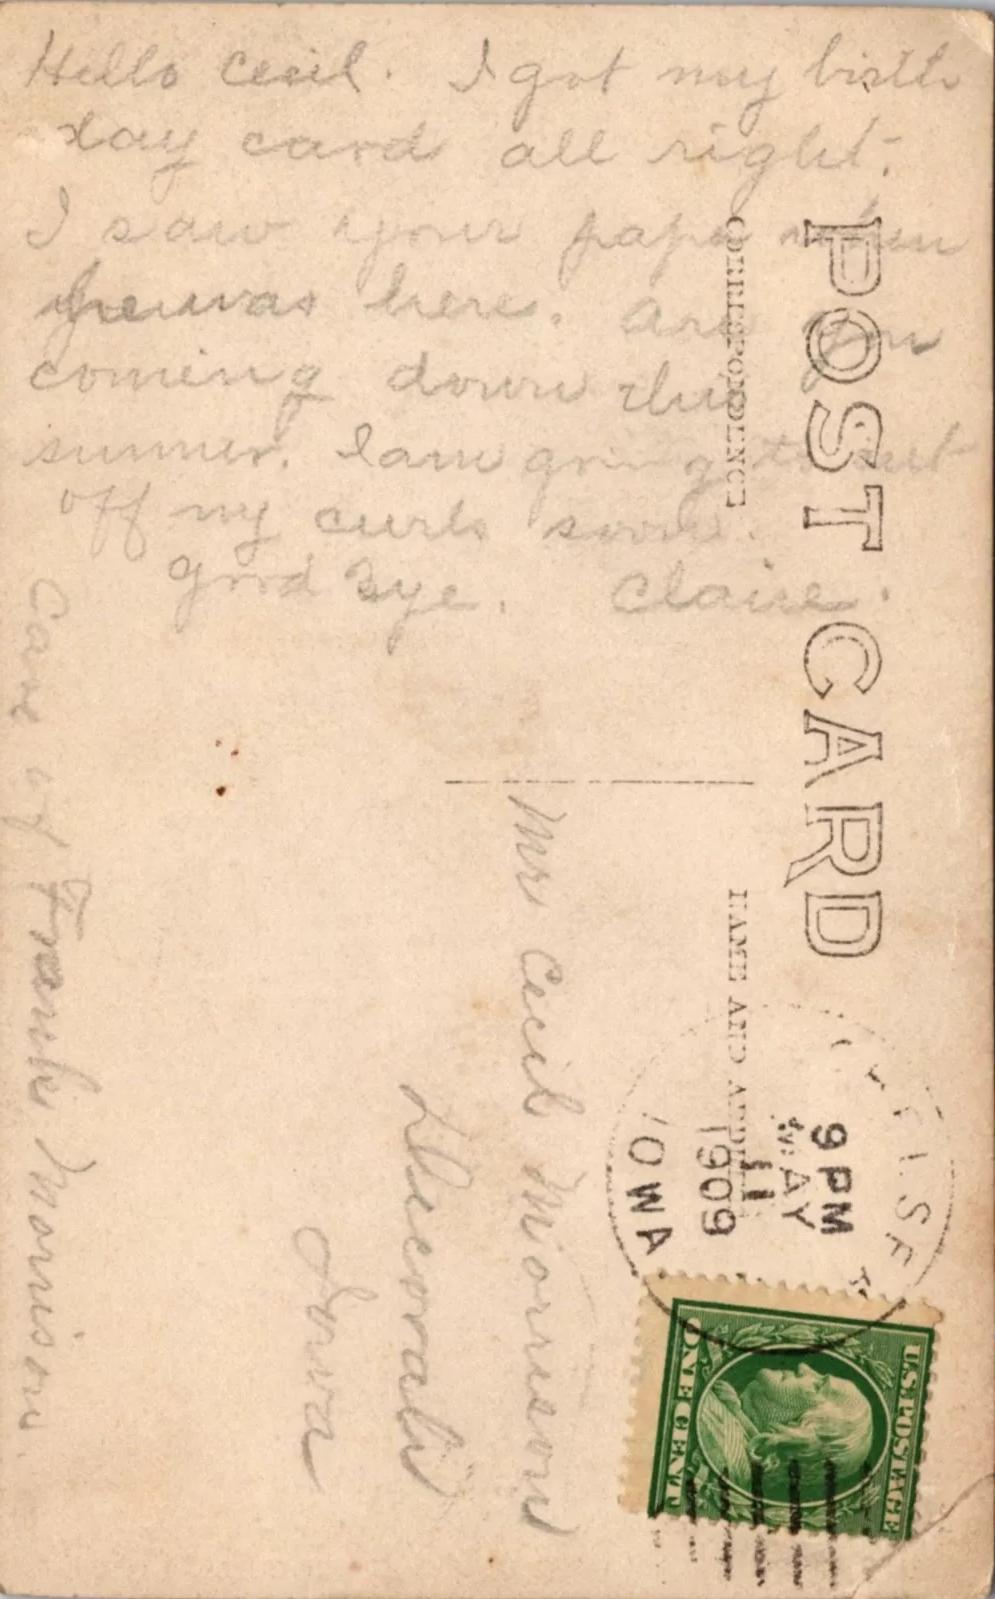 Hello Cecil. I got my birth
day card all right.
I saw your papa when
he was here. Are you
coming down this
summer. I am going to cut
off my curls soon.
Good Bye. Claire.
POST CARD
CORRESPONDENCE
NAME AND
9 PM
MAY
11
1909
IOWA
U.S. POSTAGE
ONE CENT
Mr Cecil Morrison
Iowa
Care of Frank Morrison.